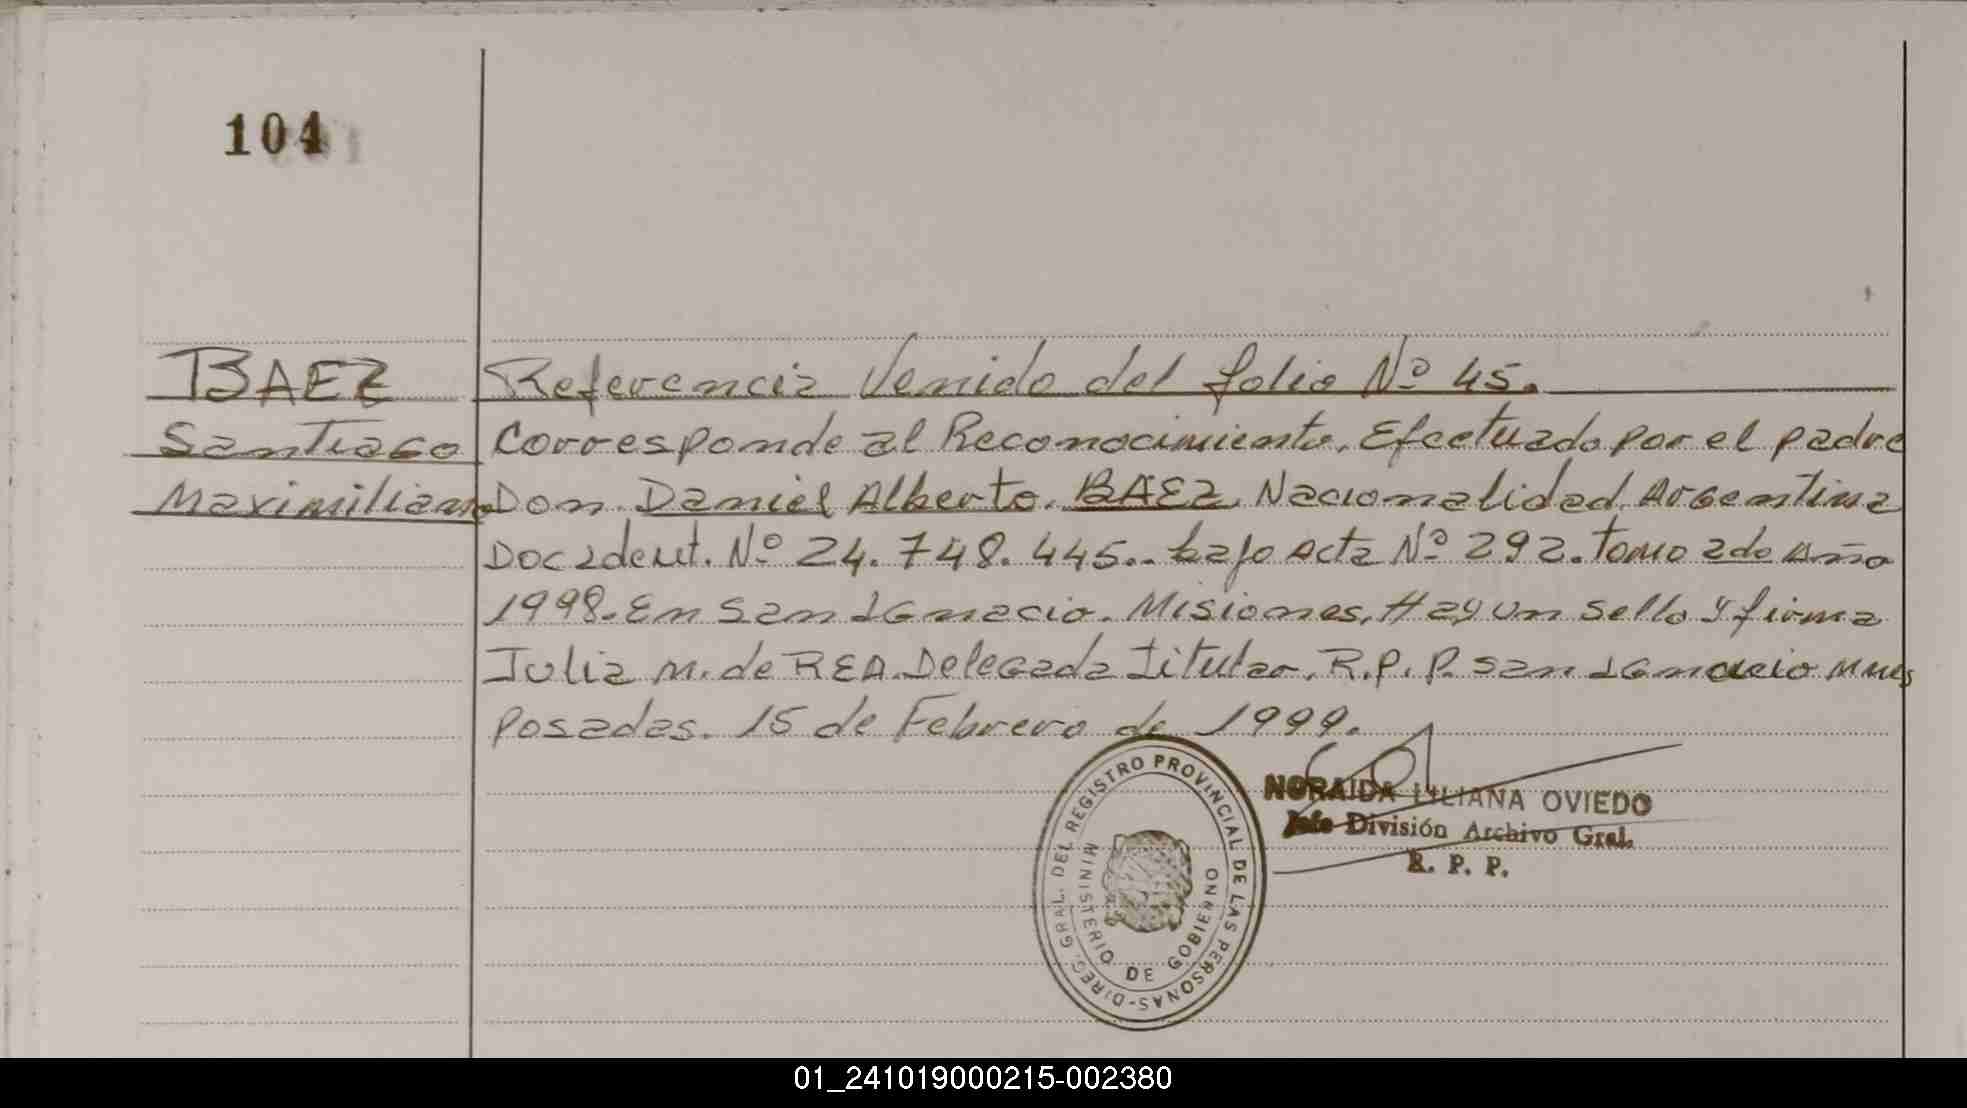 104
BAEZ
Santiago
Maximiliano
Referencia Venido del folio Nº 45.
Corresponde al Reconocimiento. Efectuado por el padre
Don. Daniel Alberto. BAEZ. Nacionalidad. Argentina
Doc ident. Nº 24.748.445.. bajo Acta Nº 292. tomo 2do Año
1998. En San Ignacio. Misiones. Hay un sello y firma
Julia M. de REA. Delegada Titular. R.P.P. San Ignacio Mnes
Posadas. 15 de Febrero de 1999.
DIREC. GRAL. DEL REGISTRO PROVINCIAL DE LAS PERSONAS-
MINISTERIO DE GOBIERNO
NORAIDA LILIANA OVIEDO
Jefe División Archivo Gral.
R. P. P.
01_241019000215-002380